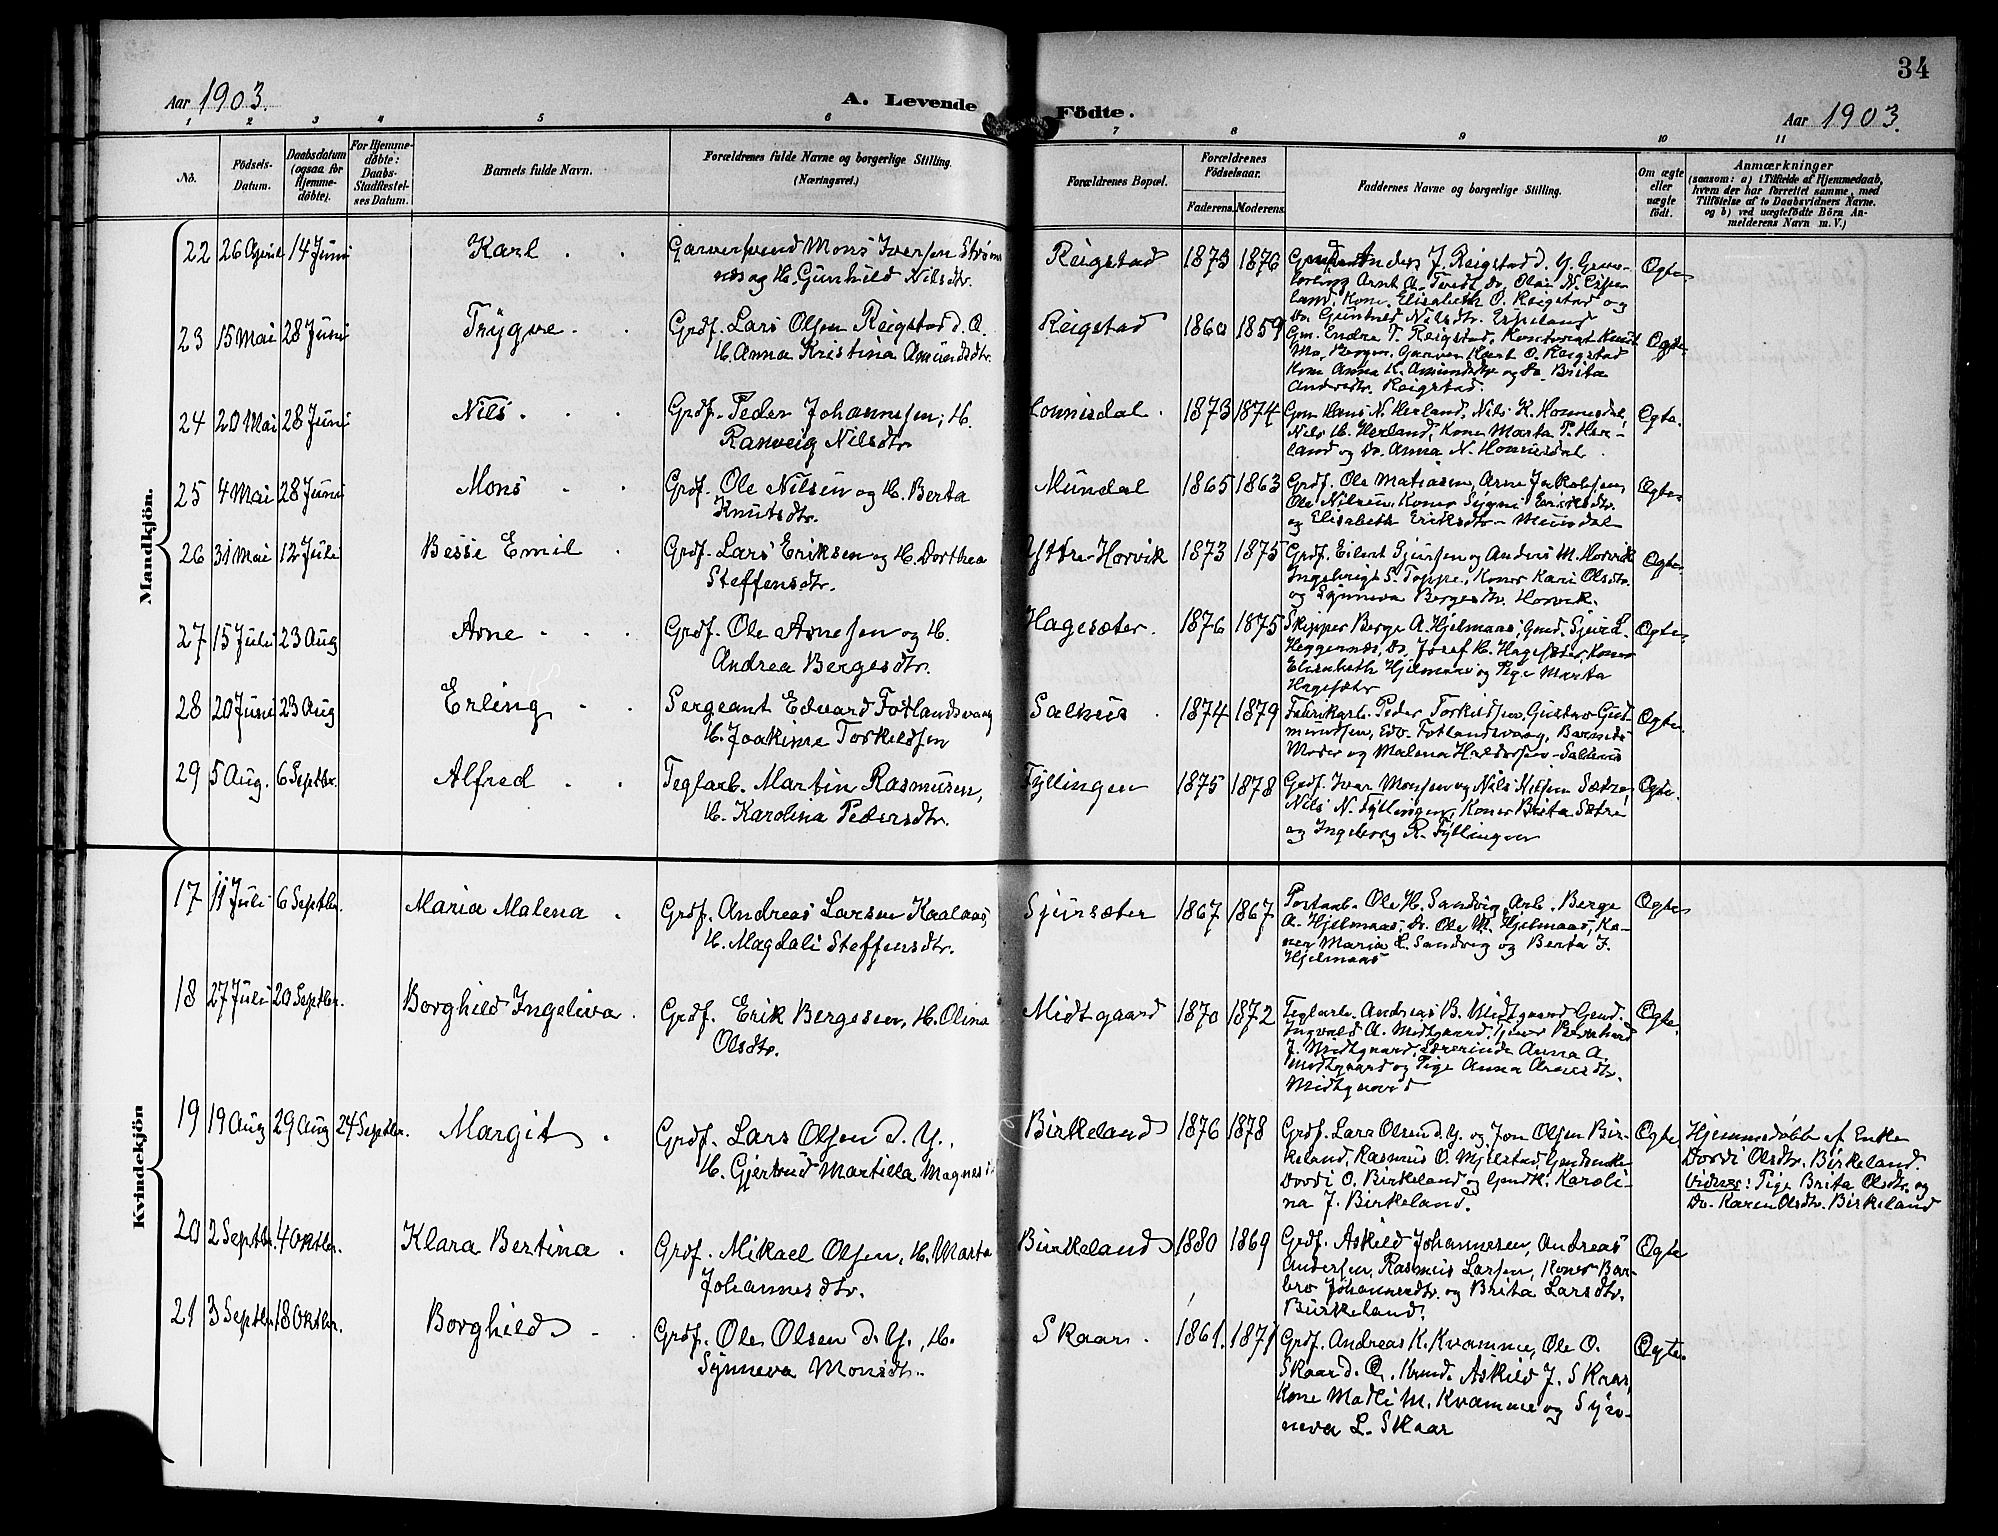 34
Aar 1903.
A. Levende
Födte.
Aar 1903.
1 2 3 4 5 6 7 8 9 10 11
No.
Födsels-
Datum.
Daabsdatum
(ogsaa for
Hjemme-
døbte).
For Hjemme-
døbte:
Daabs-
Stadfæstel-
ses Datum.
Barnets fulde Navn.
Forældrenes fulde Navne og borgerlige Stilling.
(Næringsvei.)
Forældrenes Bopæl.
Forældrenes
Fødselsaar.
Faderens. Moderens.
Faddernes Navne og borgerlige Stilling.
Om ægte
eller
uægte
født.
Anmærkninger
(saasom: a) i Tilfælde af Hjemmedaab,
hvem der har forrettet samme, med
Tilføielse af to Daabsvidners Navne.
og b) ved uægtefødte Börn An-
melderens Navn m. V.)
Mandkjön.
22 26 April 14 Juni Karl
Garversvend Mons Iversen Strøm
nes og H. Gunhild Nilsdtr.
Reigstad 1873 1876
Anders J. Reigstad d. Y.
Arnt A. Tvedt, Do. Olai N. Espe
land, Kone Elisabeth O. Reigstad og
Do Gunhild Nilsdtr. Espeland
Ægte
23 15 Mai 28 Juni Trygve
Grdf. Lars Olsen Reigstad d. Æ.
H. Anna Kristina Amundsdtr.
Reigstad 1860 1859
Gm. Endre T. Reigstad, Kontorist Knut
Mo, Bergen, Garver Karl O. Reigstad
Kone Anna K. Amundsdtr og Do. Brita
Andersdtr. Reigstad.
Ægte
24 20 Mai 28 Juni Nils
Grdf. Peder Johannesen, H.
Ranveig Nilsdtr
Honnisdal 1873 1874
Gm Hans N. Herland, Nils K. Honnisdal,
Nils H. Herland, Kone Marta P. Her-
land og Do. Anna N. Honnisdal
Ægte.
25 4 Mai 28 Juni Mons
Grdf. Ole Nilsen og H. Berta
Knutsdtr.
Mundal 1865 1863
Grdf. Ole Matiasen, Arne Jakobsen,
Ole Nilsen, Koner Sygni Eriksdtr.
og Elisabeth Eriksdtr - Mundal
Ægte
26 31 Mai 12 Juli Bessie Emil
Grdf. Lars Eriksen og H. Dorthea
Steffensdtr.
Yttre-Horvik 1873 1875
Grdf. Eilert Sjursen og Anders M. Horvik
Ingebrigt S. Toppe, Koner Kari Olsdtr.
og Synneva Bergesdtr. Horvik.
Ægte
27 15 Juli 23 Aug Arne
Grdf. Ole Arnesen og H.
Andrea Bergesdtr.
Hagesæter. 1876 1875
Skipper Berge A. Hjelmaas, Gmd. Sjur L.
Heggernæs, Do. Josef H. Hagesæter, Koner
Elisabeth Hjelmaas og Pige Marta
Hagesæter
Ægte
28 20 Juni 23 Aug Erling
Sergeant Edvard Fotlandsvaag
H. Joakime Torkildsen
Salhus 1874 1879
Fabrikarb. Peder Torkildsen, Gustav Gud
mundsen, Edv. Fotlandsvaag, Barnets
Moder og Malena Haldorsen - Salhus
Ægte.
29 5 Aug. 6 Septbr. Alfred
Teglarb. Martin Rasmusen,
H. Karolina Pedersdtr.
Fyllingen 1875 1878
Grdf. Ivar Monsen og Nils Nilsen Sætre,
Nils N. Fyllingen, Koner Brita Sætre
og Ingeborg R. Fyllingen
Ægte.
Kvindekjön
17 11 Juli 6 Septbr. Maria Malena
Grdf. Andreas Larsen Kaalaas,
H. Magdali Steffensdtr.
Sjursæter 1867 1867
Postaab. Ole H. Sandvig, Arb. Berge
A. Hjelmaas, Do. Ole M. Hjelmaas, Ko-
ner Maria L. Sandvig og Berta J.
Hjelmaas
Ægte
18 27 Juli 20 Septbr. Borghild Ingeliva.
Grdf. Erik Bergesen, H. Olina
Olsdtr.
Midtgaard 1870 1872
Teglarb. Andreas B. Midtgaard Gmd.
Ingvald A. Midtgaard, Bernhard
J. Midtgaard, Lærerinde Anna A.
Midtgaard og Pige Anna Arnesdtr.
Midtgaard
Ægte.
19 19 Aug 29 Aug 24 Septbr. Margit
Grdf. Lars Olsen d. Y.,
H. Gjertrud Martilla Magnesd
Birkeland 1876 1878
Grdf. Lars Olsen d. Y. og Jon Olsen Bir-
keland, Rasmus O. Mjelstad, Gmdenke
Dordi O. Birkeland og Gmdk. Karoli-
na J. Birkeland.
Ægte
Hjemmedøbt af Enke
Dordi Olsdtr. Birkeland.
Vidner: Pige Brita Olsdtr. og
Do. Karen Olsdtr. Birkeland
20 2 Septbr. 4 Oktbr. Klara Bertina
Grdf. Mikael Olsen, H. Marta
Johannesdtr.
Birkeland 1880 1869
Grdf. Askild Johannesen, Andreas
Andersen, Rasmus Larsen, Koner Bar-
bro Johannesdtr. og Brita Larsdtr.
Birkeland.
Ægte
21 3 Septbr. 18 Oktbr. Borghild
Grdf. Ole Olsen d. Y., H.
Synneva Monsdtr.
Skaar. 1861. 1871
Grdf. Andreas K. Kvamme, Ole O.
Skaar d. Æ. Askild J. Skaar,
Kone Madli M. Kvamme og Syn-
neva L. Skaar
Ægte.